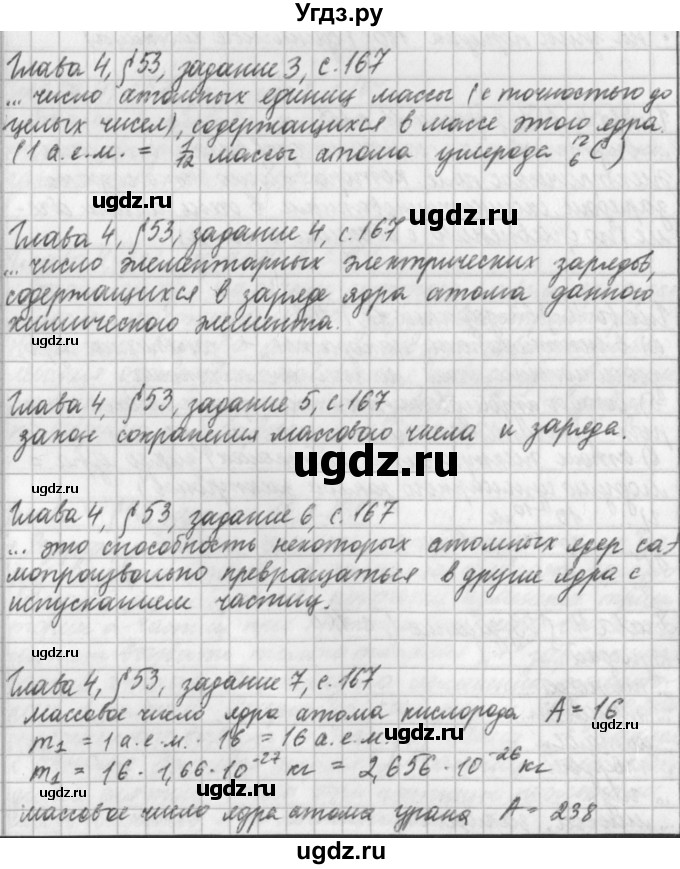 Угдз.ру
Глава 4, §53, задание 3, с.167
... число атомных единиц массы (с точностью до
целых чисел), содержащихся в массе этого ядра.
(1 а.е.м. = 1/12 массы атома углерода ¹²₆C)
ugdz.ru
ugdz.ru
Глава 4, §53, задание 4, с.167
... число элементарных электрических зарядов,
содержащихся в заряде ядра атома данного
химического элемента.
ugdz.ru
ugdz.ru
Глава 4, §53, задание 5, с.167
закон сохранения массового числа и заряда.
ugdz.ru
ugdz.ru
Глава 4, §53, задание 6, с.167
... это способность некоторых атомных ядер са-
мопроизвольно превращаться в другие ядра с
испусканием частиц.
ugdz.ru
ugdz.ru
Глава 4, §53, задание 7, с.167
массовое число ядра атома кислорода A = 16
ugdz.ru
m₁ = 1 а.е.м. · 16 = 16 а.е.м.
ugdz.ru
m₁ = 16 · 1,66 · 10⁻²⁷ кг = 2,656 · 10⁻²⁶ кг
ugdz.ru
ugdz.ru
массовое число ядра атома урана A = 238
ugdz.ru
ugdz.ru